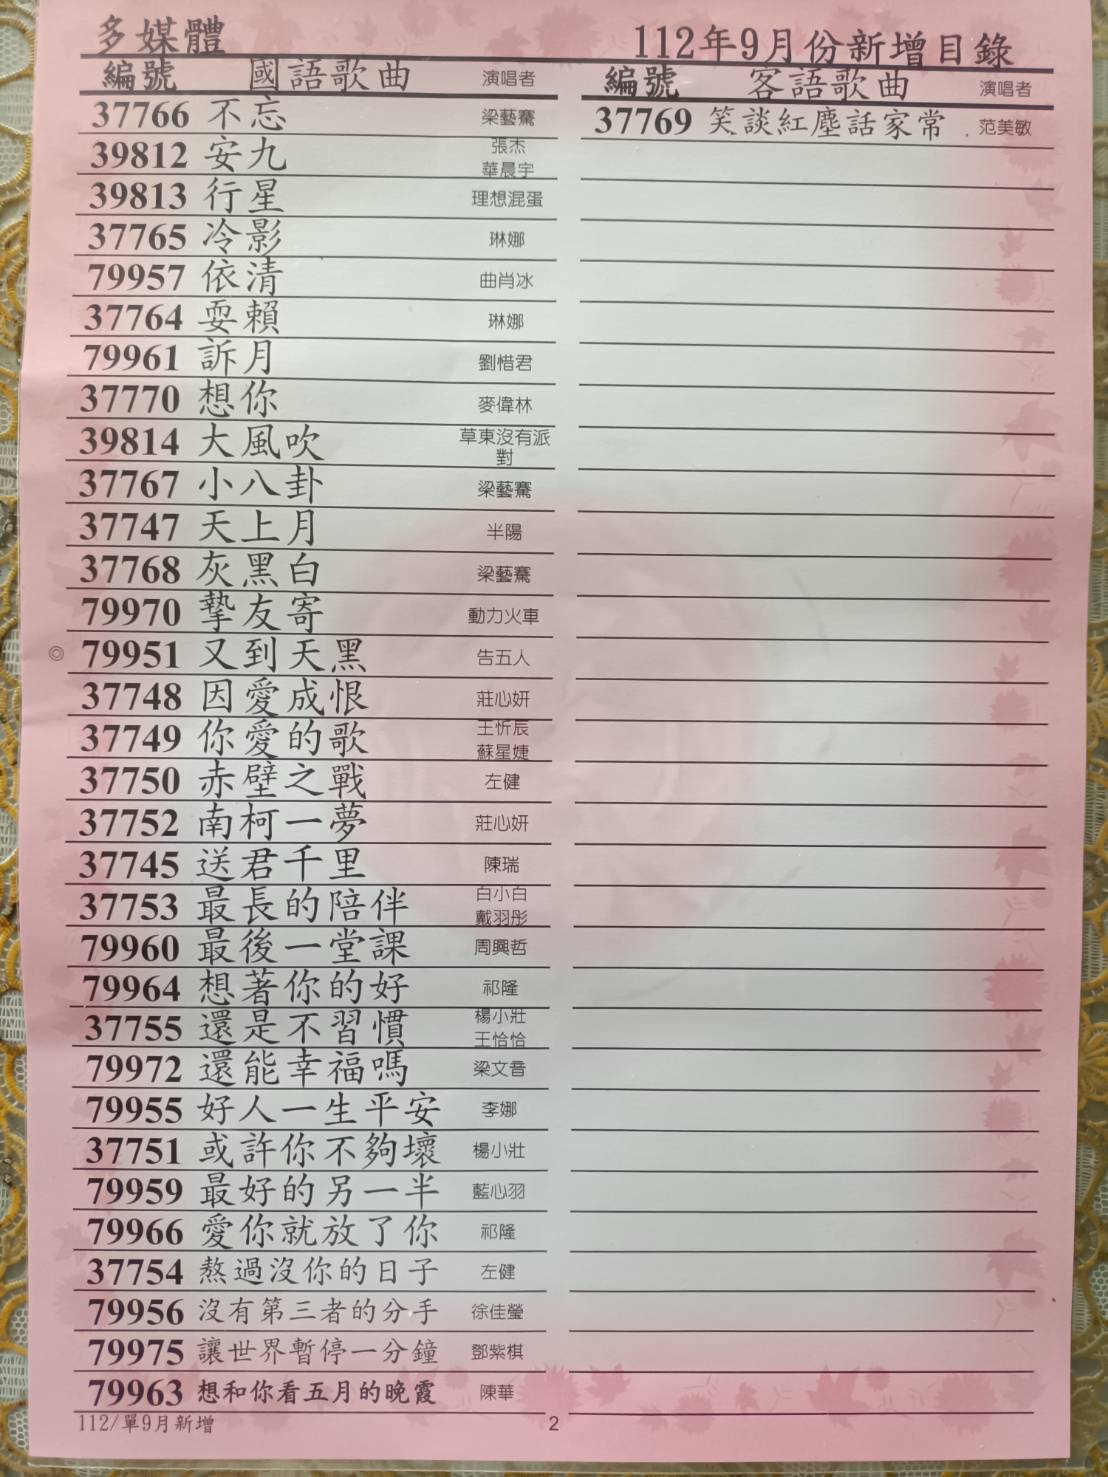 多媒體
112年9月份新增目錄
編號 國語歌曲 演唱者
編號 客語歌曲 演唱者
37766 不忘 梁藝騫
37769 笑談紅塵話家常 范美敏
39812 安九 張杰 華晨宇
39813 行星 理想混蛋
37765 冷影 琳娜
79957 依清 曲肖冰
37764 耍賴 琳娜
79961 訴月 劉惜君
37770 想你 麥偉林
39814 大風吹 草東沒有派對
37767 小八卦 梁藝騫
37747 天上月 半陽
37768 灰黑白 梁藝騫
79970 摯友寄 動力火車
◎ 79951 又到天黑 告五人
37748 因愛成恨 莊心妍
37749 你愛的歌 王忻辰 蘇星婕
37750 赤壁之戰 左健
37752 南柯一夢 莊心妍
37745 送君千里 陳瑞
37753 最長的陪伴 白小白 戴羽彤
79960 最後一堂課 周興哲
79964 想著你的好 祁隆
37755 還是不習慣 楊小壯 王恰恰
79972 還能幸福嗎 梁文音
79955 好人一生平安 李娜
37751 或許你不夠壞 楊小壯
79959 最好的另一半 藍心羽
79966 愛你就放了你 祁隆
37754 熬過沒你的日子 左健
79956 沒有第三者的分手 徐佳瑩
79975 讓世界暫停一分鐘 鄧紫棋
79963 想和你看五月的晚霞 陳華
112/單9月新增
2